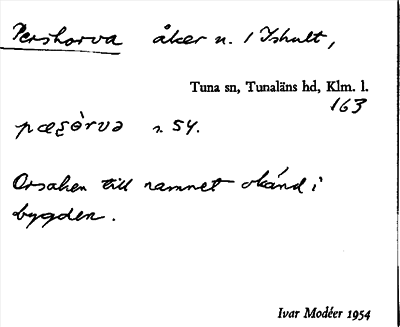 Pershorva åker n. 1 Ishult,
Tuna sn, Tunaläns hd, Klm. l.
163
s. 54.
Orsaken till namnet okänd i
bygden.
Ivar Modéer 1954